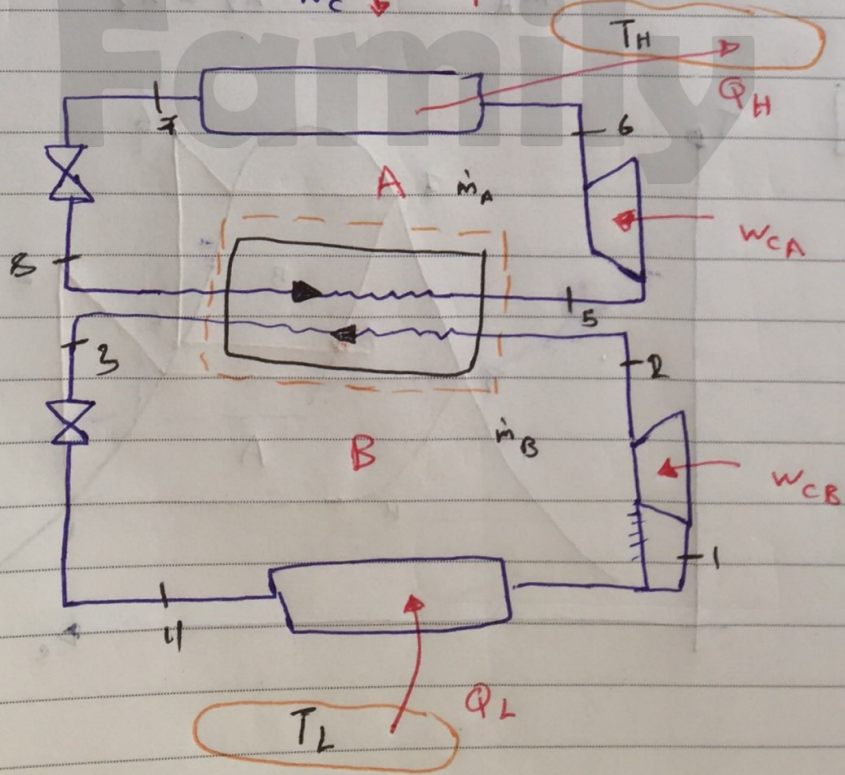 Family
TH
QH
7
6
A
ṁA
WCA
8
5
3
2
B
ṁB
WCB
1
4
QL
TL